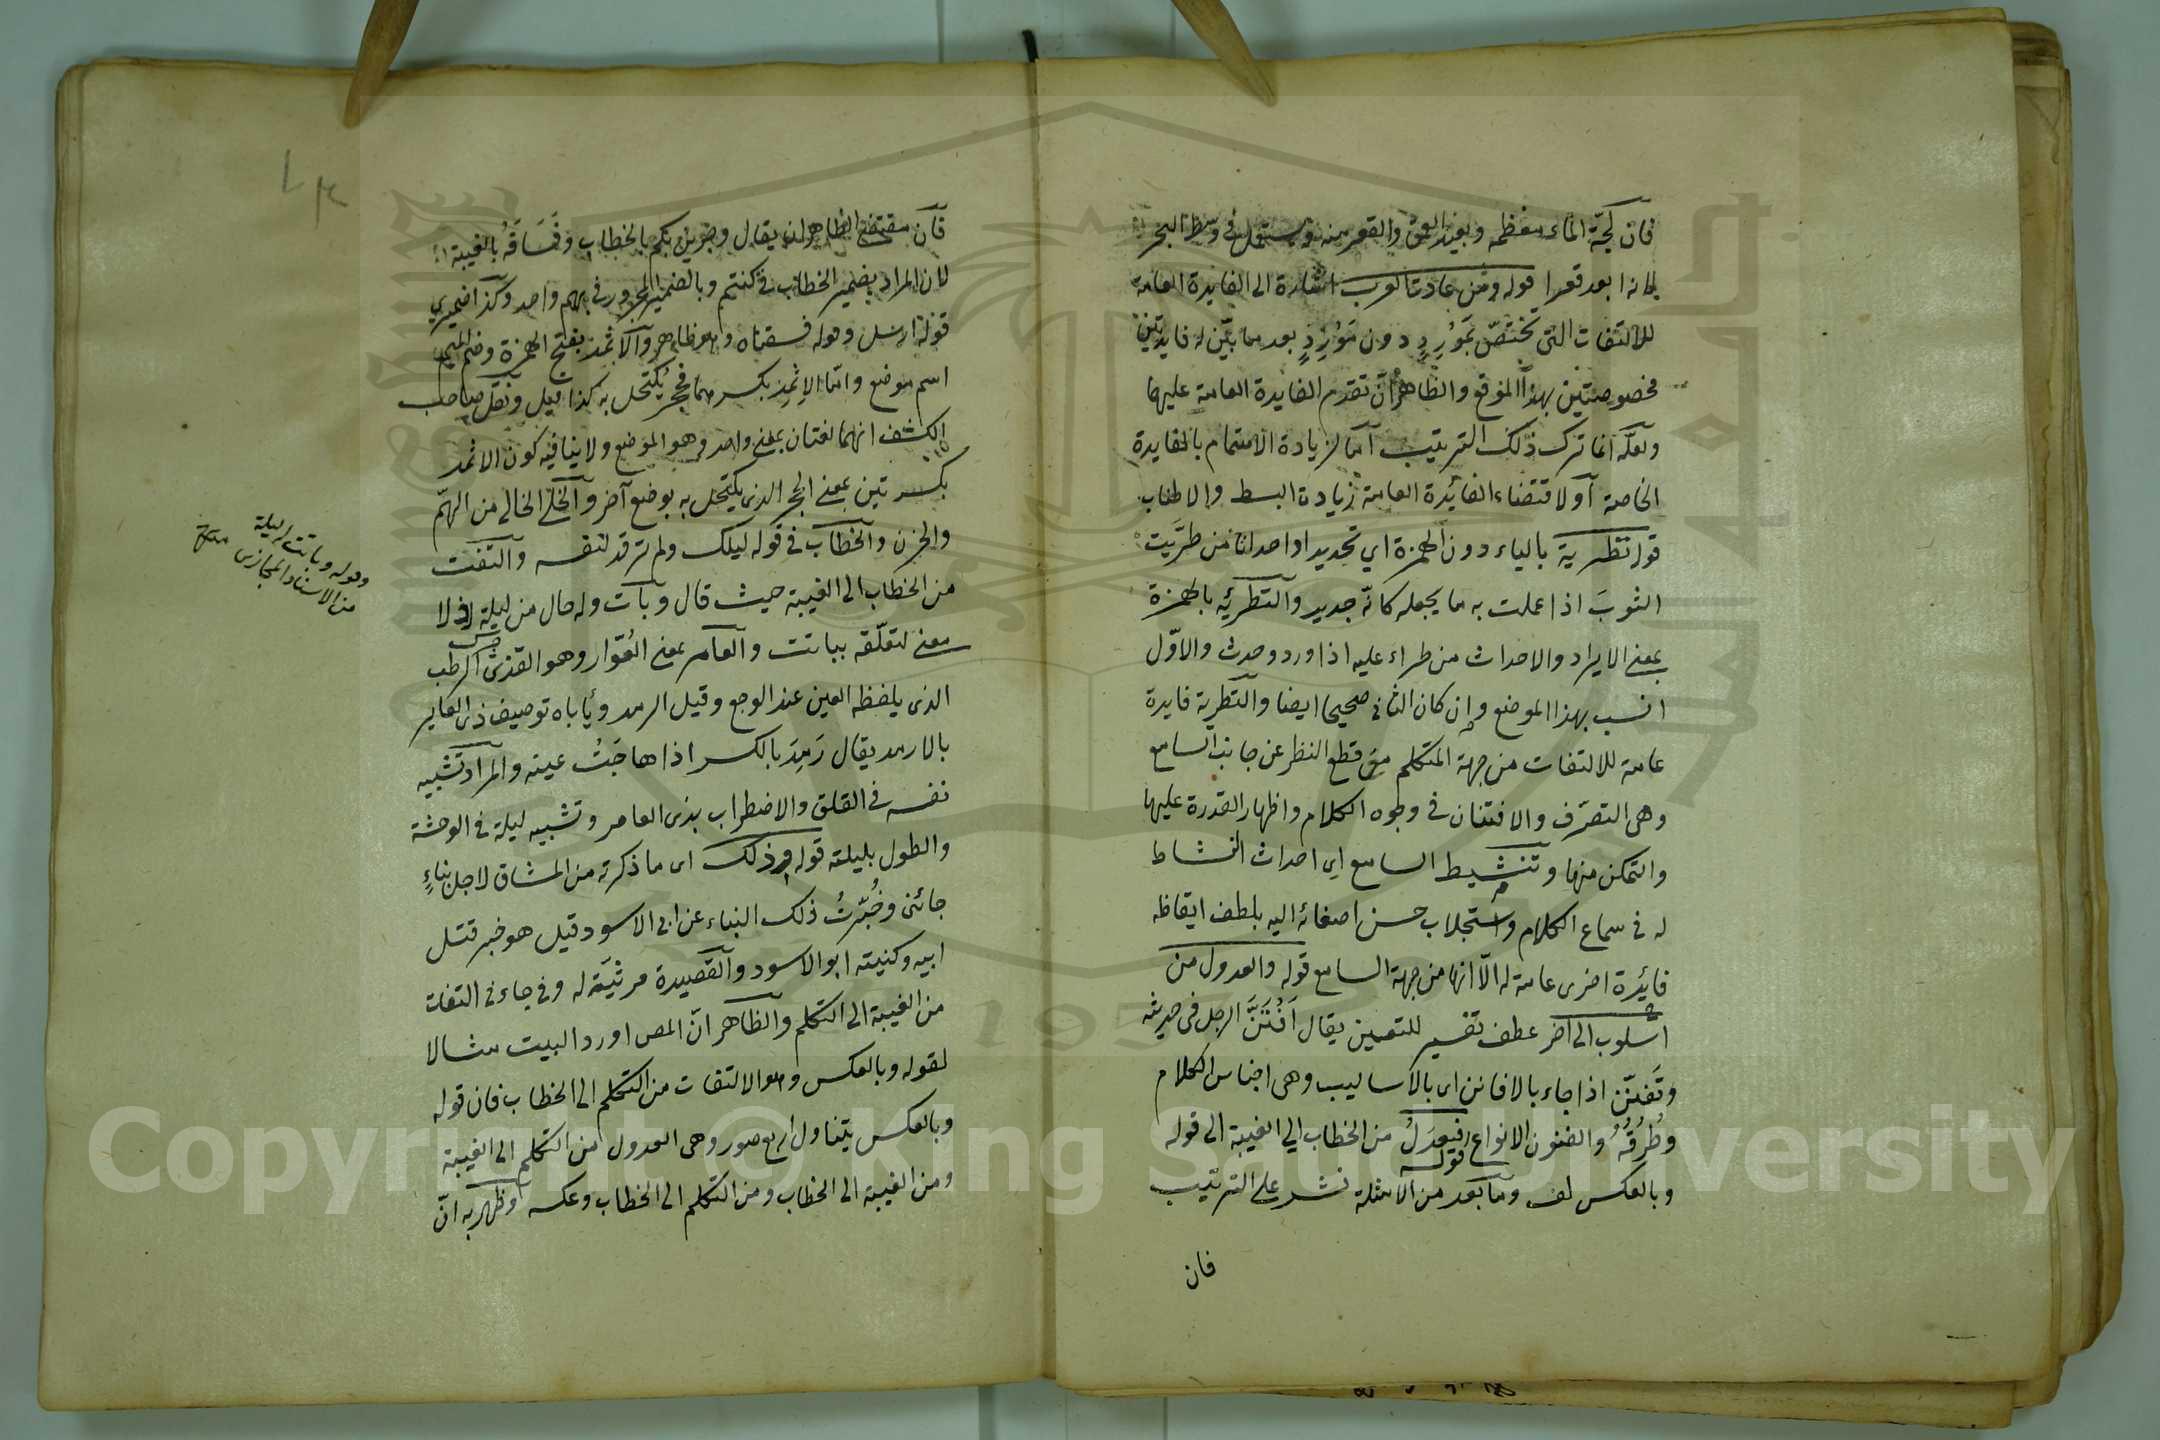 فان لجّة الماء معظمه وبعيد العمق والقعر منه ويستعمل في وسط البحر
لانه ابعد قعرا قوله ومن عادت العرب اشارة الى الفايدة العامة
للالتفات التي تختصّ بمَوْرِدٍ دون مَوْرِدٍ بعد ما بيّن له فايدتين
مخصوصتين بهذا الموقع والظاهر ان تقدم الفايدة العامة عليهما
ولعلّه انما ترك ذلك الترتيب اما لزيادة الاهتمام بالفايدة
الخاصة او لاقتضاء الفائدة العامة زيادة البسط والاطناب
قوله تطرية بالياء دون الهمزة اي تجديدا واحداثا من طرّيت
الثوبَ اذا عملت به ما يجعله كانّه جديد والتطرئه بالهمزة
بمعنى الايراد والاحداث من طراء عليه اذا ورد وحدث والاوّل
انسب بهذا الموضع وان كان الثاني صحيحا ايضا والتطرية فايدة
عامة للالتفات من جهة المتكلم مع قطع النظر عن جانب السامع
وهى التصرّف والافتنان في وجوه الكلام واظهار القدرة عليها
والتمكن منها وتنشيط السامع اى احداث النشاط
له في سماع الكلام واستجلاب حسن اصغائه اليه بلطف ايقاظه
فائدة اخرى عامة له الّا انها من جهة السامع قوله والعدول من
اسلوب الى اخر عطف تفسير للتفنن يقال اَفْتَنَّ الرجل في حديثه
وتَفنّن اذا جاء بالافانين اى بالاساليب وهى اجناس الكلام
وطُرُقُهُ والفنون الانواع قوله فيعدلُ من الخطاب الي الغيبة الى قوله
وبالعكس لف وما بعد من الامثلة نشر على الترتيب
فان
فان مقتضى الظاهر ان يقال وجرين بكم بالخطاب وفَسَاقَهُ بالغيبة
لان المراد بضمير الخطاب في كنتم وبالضمير المجرور في بهم واحد وكذا ضميري
قوله ارسل وقوله فسقناه وهو ظاهر والاثمد بفتح الهمزة وضم الميم
اسم موضع واما الاِثمِد بكسرهما فحجر يُكتحل به كذا قيل ونقل صاحب
الكشف انهما لغتان بمعنى واحد وهو الموضع ولا ينافيه كون الاثمد
بكسرتين بمعنى الحجر الذى يكتحل به بوضع آخر والخلّي الخالى من الهمّ
والحزن والخطاب في قوله ليلك ولم ترقد لنفسه والتفت
من الخطاب الى الغيبة حيث قال وبات وله حال من ليلة اذ لا
معنى لتعلّقه بباتت والعاير بمعنى العُوّار وهو القذى الرطب
الذى يلفظه العين عند الوجع وقيل الرمد ويأباه توصيف ذى العاير
بالارمد يقال رَمِدَ بالكسر اذا هاجَتْ عينه والمراد تشبيه
نفسه في القلق والاضطراب بذى العاير وتشبيه ليلة في الوحشة
والطول بليلته قوله وذلك اى ما ذكرته من المشاق لاجل نباءٍ
جائنى وخُبّرتُ ذلك النباء عن ابى الاسود قيل هو خبر قتل
ابيه وكنيته ابو الاسود والقصيدة مرثيّة له وفى جاءنى التفات
من الغيبة الى التكلم والظاهر انّ المص اورد البيت مثالا
لقوله وبالعكس وهو الالتفات من التكلم الى الخطاب فان قوله
وبالعكس يتناول اربع صور وهى العدول من التكلم الى الغيبة
ومن الغيبة الى الخطاب ومن التكلم الى الخطاب وعكسه وظهر به انّ
وقوله وباتت له ليلة
من الاسناد المجازى
Copyright © King Saud University